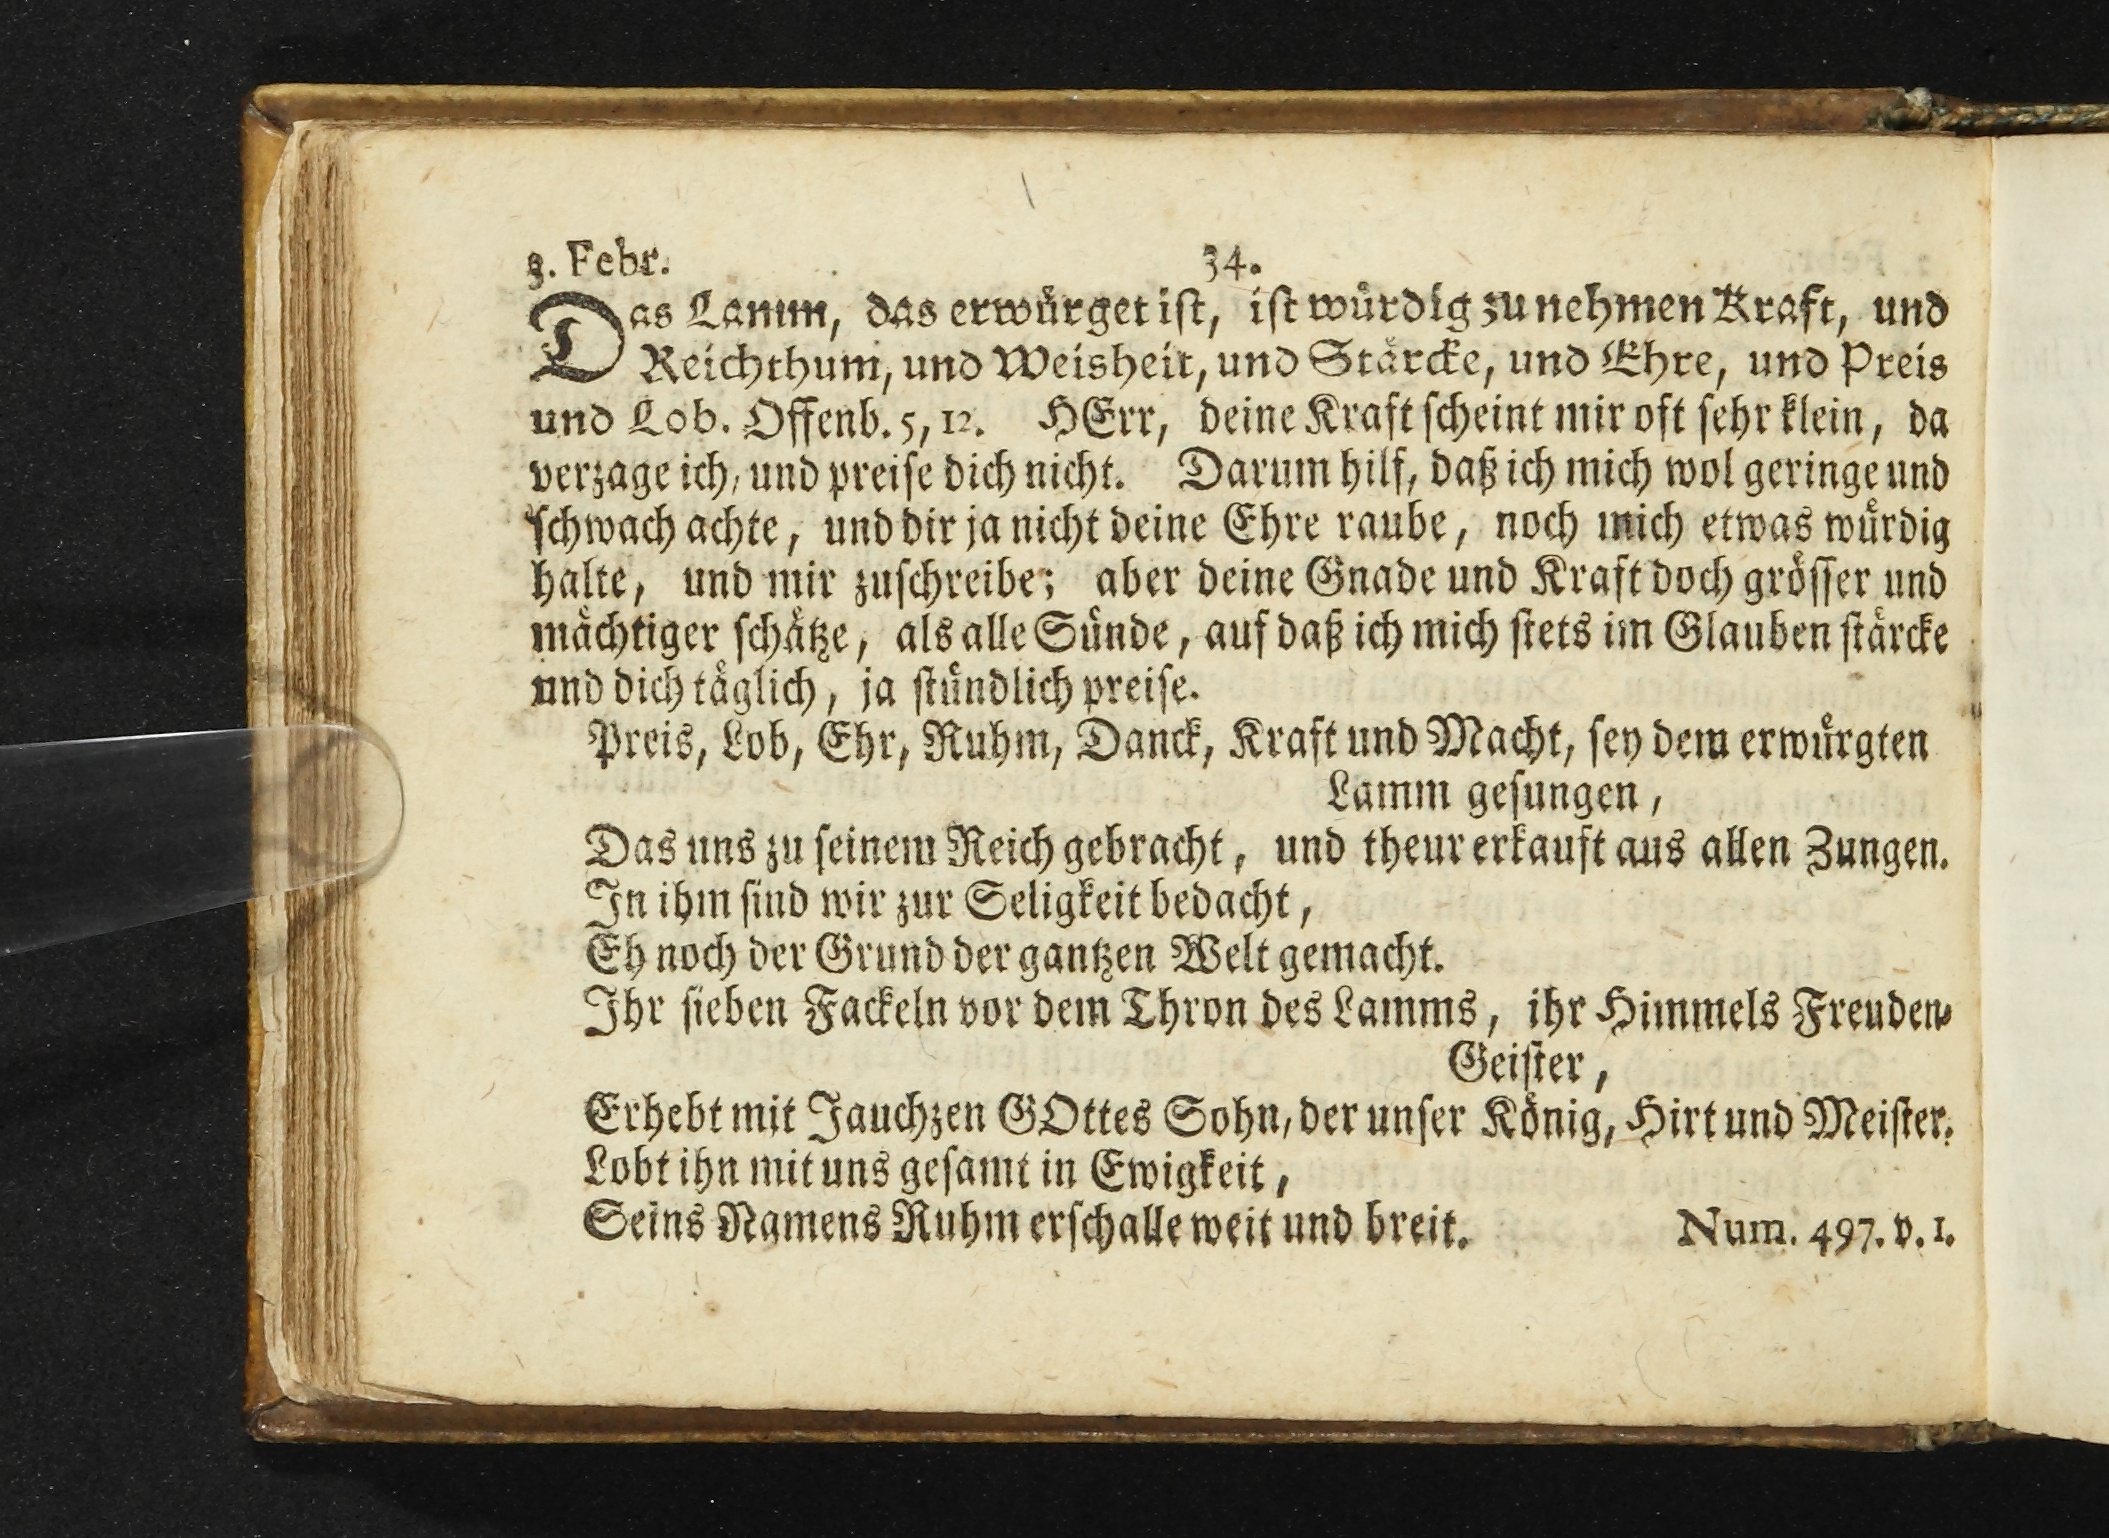 3. Febr. 34.
Das Lamm, das erwürget ist, ist würdig zu nehmen Kraft, und
Reichthum, und Weisheit, und Stärcke, und Ehre, und Preis
und Lob. Offenb. 5, 12. HErr, deine Kraft scheint mir oft sehr klein, da
verzage ich, und preise dich nicht. Darum hilf, daß ich mich wol geringe und
schwach achte, und dir ja nicht deine Ehre raube, noch mich etwas würdig
halte, und mir zuschreibe; aber deine Gnade und Kraft doch grösser und
mächtiger schätze, als alle Sünde, auf daß ich mich stets im Glauben stärcke
und dich täglich, ja stündlich preise.
Preis, Lob, Ehr, Ruhm, Danck, Kraft und Macht, sey dem erwürgten
Lamm gesungen,
Das uns zu seinem Reich gebracht, und theur erkauft aus allen Zungen.
In ihm sind wir zur Seligkeit bedacht,
Eh noch der Grund der gantzen Welt gemacht.
Ihr sieben Fackeln vor dem Thron des Lamms, ihr Himmels Freuden-
Geister,
Erhebt mit Jauchzen GOttes Sohn, der unser König, Hirt und Meister.
Lobt ihn mit uns gesamt in Ewigkeit,
Seins Namens Ruhm erschalle weit und breit. Num. 497. v. 1.